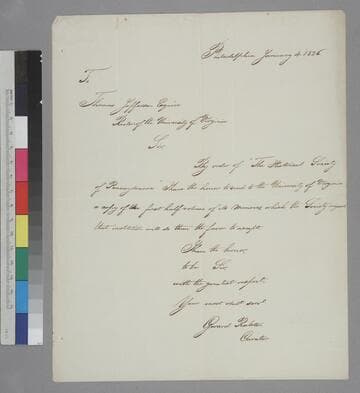 Philadelphia January 4. 1826
To
Thomas Jefferson Esquire
Rector of the University of Virginia
Sir
By order of "The Historical Society
of Pennsylvania" I have the honor to send to the University of Virginia
a copy of the first half volume of its Memoirs, which the Society request
that institution will do them the favor to accept.
I have the honor,
to be Sir,
with the greatest respect,
Your most obdt servt
Gerard Ralston
Curator